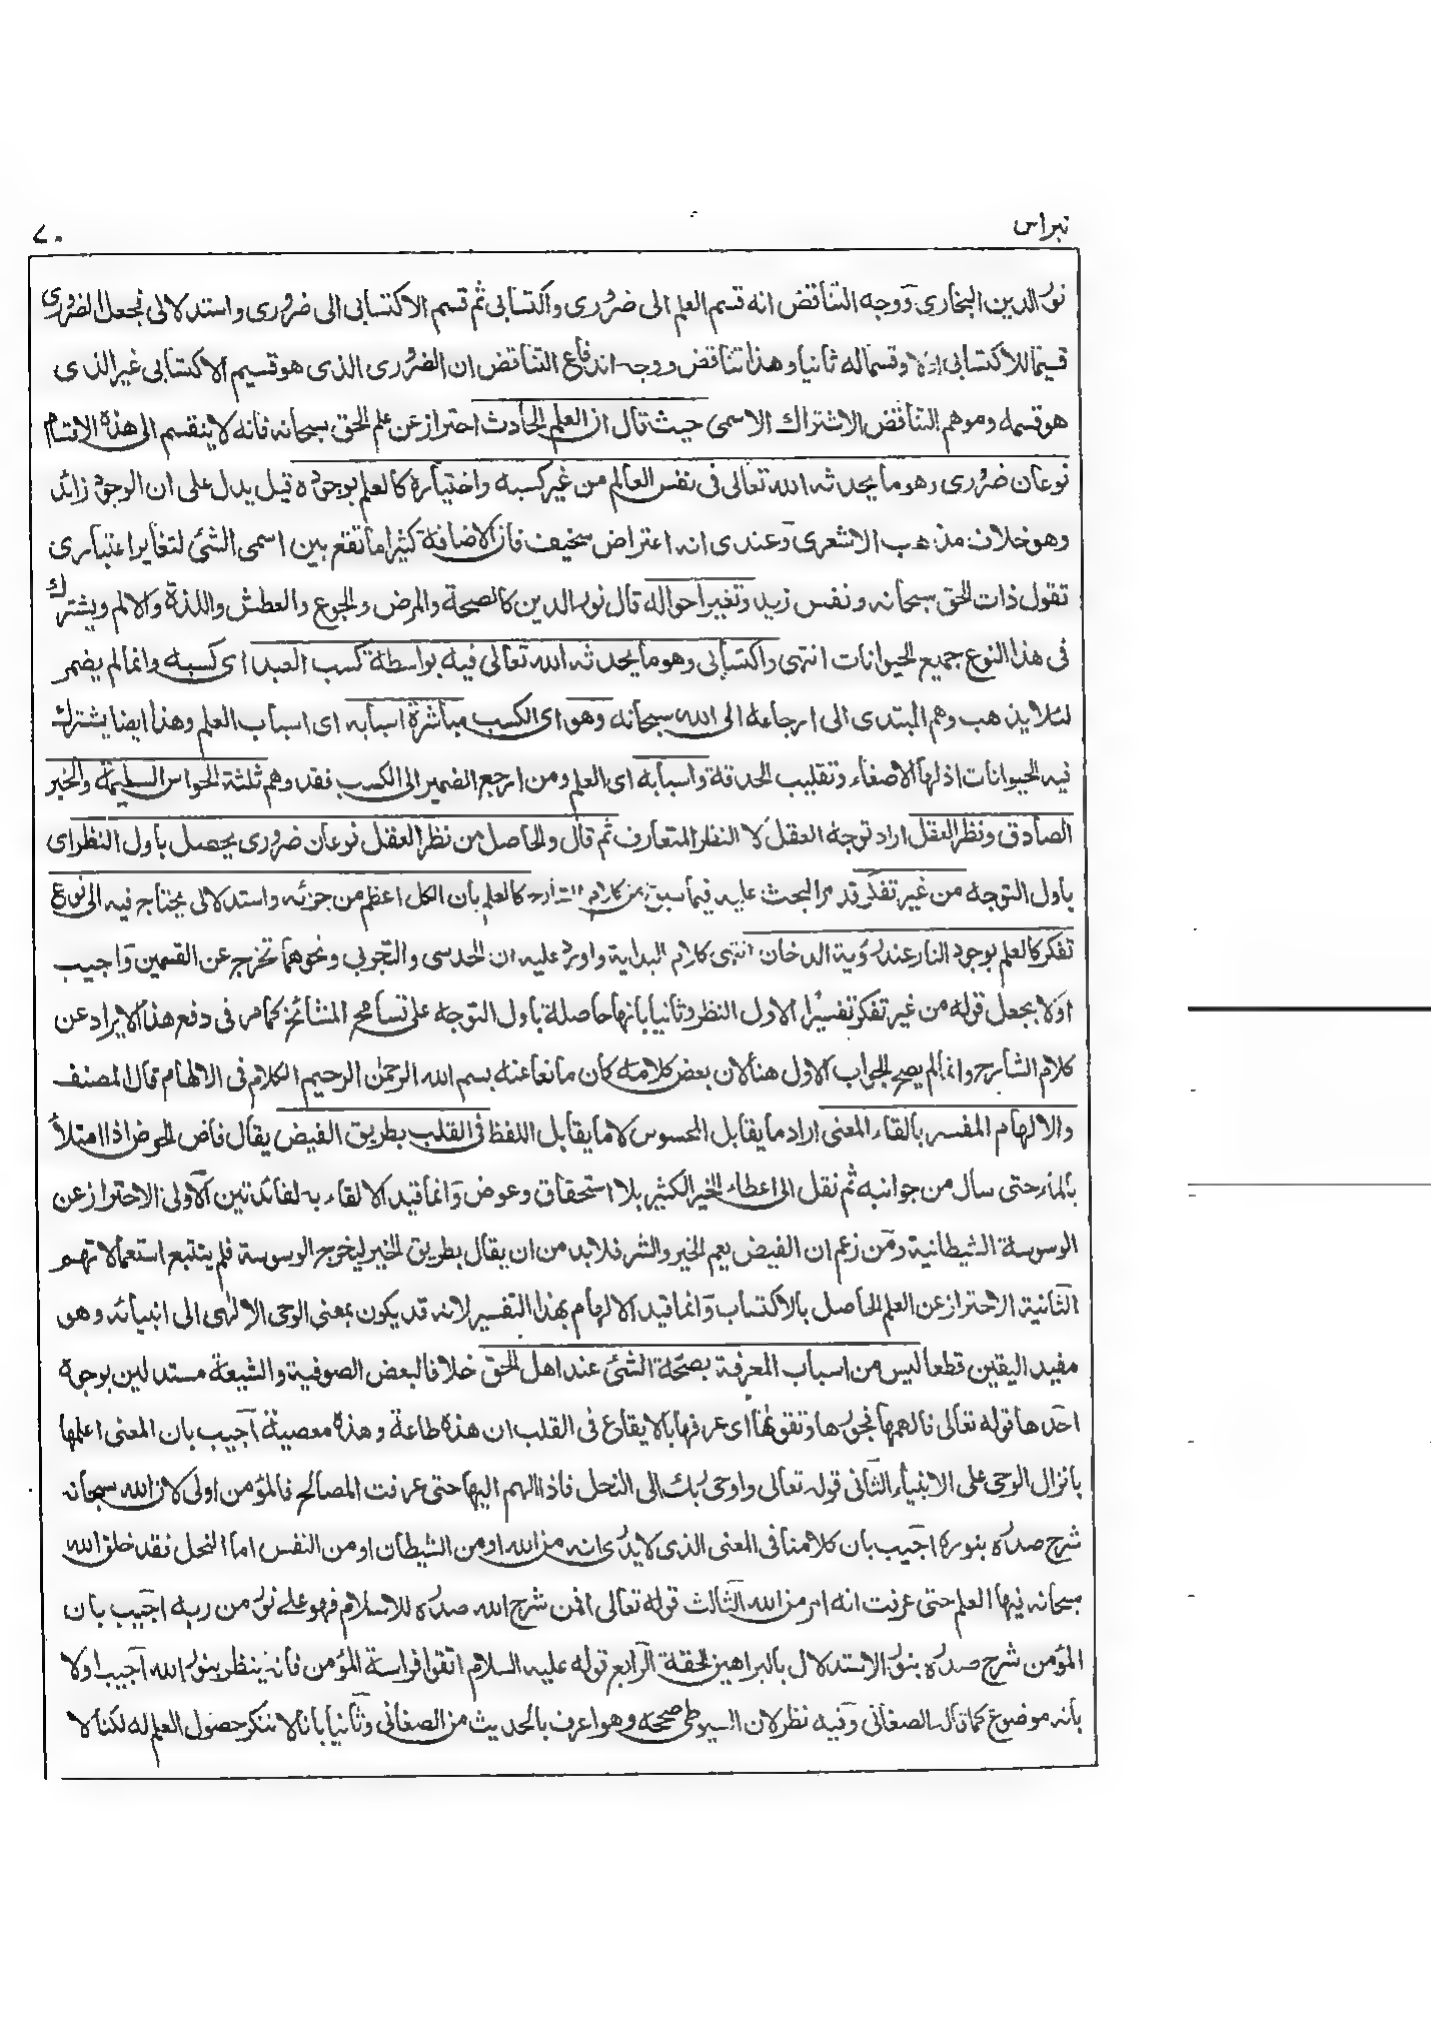 نبراس
٧٠
نور الدين البخارى ووجه التناقض انه قسم العلم الى ضرورى واكتسابى ثم قسم الاكتسابى الى ضرورى واستدلالى فجعل الضرورى
قسيما للاكتسابى اولا وقسما له ثانيا وهذا تناقض ووجه اندفاع التناقض ان الضرورى الذى هو قسيم الاكتسابى غير الذى
هو قسمه وموهم التناقض الاشتراك الاسمى حيث قال ان العلم الحادث احتراز عن علم الحق سبحانه فانه لا ينقسم الى هذه الاقسام
نوعان ضرورى وهو ما يحدثه الله تعالى فى نفس العالم من غير كسبه واختياره كالعلم بوجوده قيل يدل على ان الوجود زائد
وهو خلاف مذهب الاشعرى وعندى انه اعتراض سخيف فان الاضافة كثيرا ما تقع بين اسمى الشئ لتغاير اعتبارى
تقول ذات الحق سبحانه ونفس زيد وتغير احواله قال نور الدين كالصحة والمرض والجوع والعطش واللذة والالم ويشترك
فى هذا النوع جميع الحيوانات انتهى واكتسابى وهو ما يحدثه الله تعالى فيه بواسطة كسب العبد اى كسبه وانما لم يضمر
لئلا يذهب وهم المبتدى الى ارجاعه الى الله سبحانه وهو اى الكسب مباشرة اسبابه اى اسباب العلم وهذا ايضا يشترك
فيه الحيوانات اذ لها الاصغاء وتقليب الحدقة واسبابه اى العلم ومن ارجع الضمير الى الكسب فقد وهم ثلثة الحواس السليمة والخبر
الصادق ونظر العقل اراد توجه العقل لا النظر المتعارف ثم قال والحاصل من نظر العقل نوعان ضرورى يحصل باول النظر اى
باول التوجه من غير تفكر قد مر البحث عليه فيما سبق من كلام الشارح كالعلم بان الكل اعظم من جزئه واستدلالى يحتاج فيه الى نوع
تفكر كالعلم بوجود النار عند رؤية الدخان انتهى كلام البداية واورد عليه ان الحدسى والتجربى ونحوهما تخرج عن القسمين واجيب
اولا بجعل قوله من غير تفكر تفسيرا لاول النظر وثانيا بانها حاصلة باول التوجه على تسامح المشائخ كما مر فى دفع هذا الايراد عن
كلام الشارح وانما لم يصح الجواب الاول هنا لان بعض كلامه كان مانعا عنه بسم الله الرحمن الرحيم الكلام فى الالهام قال المصنف
والالهام المفسر بالقاء المعنى اراد ما يقابل المحسوس لا ما يقابل اللفظ فى القلب بطريق الفيض يقال فاض الحوض اذا امتلأ
بالماء حتى سال من جوانبه ثم نقل الى اعطاء الخير الكثير بلا استحقاق وعوض وانما قيد الالقاء به لفائدتين الاولى الاحتراز عن
الوسوسة الشيطانية ومن زعم ان الفيض يعم الخير والشر فلابد من ان يقال بطريق الخير ليخرج الوسوسة فلم يتتبع استعمالاتهم
الثانية الاحتراز عن العلم الحاصل بالاكتساب وانما قيد الالهام بهذا التفسير لانه قد يكون بمعنى الوحى الالهى الى انبيائه وهو
مفيد اليقين قطعا ليس من اسباب المعرفة بصحة الشئ عند اهل الحق خلافا لبعض الصوفية والشيعة مستدلين بوجوه
احدها قوله تعالى فالهمها فجورها وتقوٰها اى عرفها بالايقاع فى القلب ان هذه طاعة وهذه معصية اجيب بان المعنى اعلمها
بانزال الوحى على الانبياء الثانى قوله تعالى واوحى ربك الى النحل فاذا الهم اليها حتى عرفت المصالح فالمؤمن اولى لان الله سبحانه
شرح صدره بنوره اجيب بان كلامنا فى المعنى الذى لا يدرى انه من الله او من الشيطان او من النفس اما النحل فقد خلق الله
سبحانه فيها العلم حتى عرفت انه امر من الله الثالث قوله تعالى افمن شرح الله صدره للاسلام فهو على نور من ربه اجيب بان
المؤمن شرح صدره بنور الاستدلال بالبراهين الحقة الرابع قوله عليه السلام اتقوا فراسة المؤمن فانه ينظر بنور الله اجيب اولا
بانه موضوع كما قال الصغانى وفيه نظر لان السيوطى صححه وهو اعرف بالحديث من الصغانى وثانيا بانا لا ننكر حصول العلم له لكنا لا